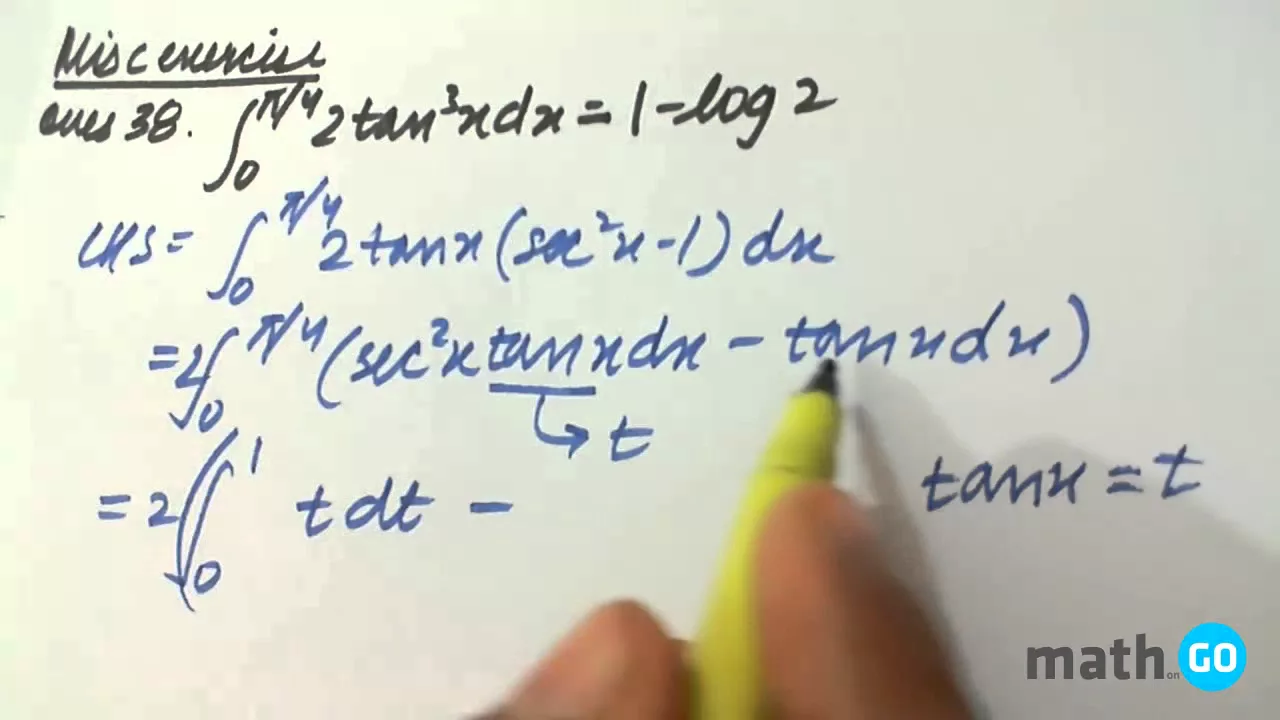 Misc exercise
Ques 38. ∫₀^π/4 2tan³xdx = 1-log2
LHS = ∫₀^π/4 2tanx(sec²x-1)dx
=2∫₀^π/4 (sec²xtanxdx - tanxdx)
t
=2(∫₀^1 tdt -
tanx = t
math on GO